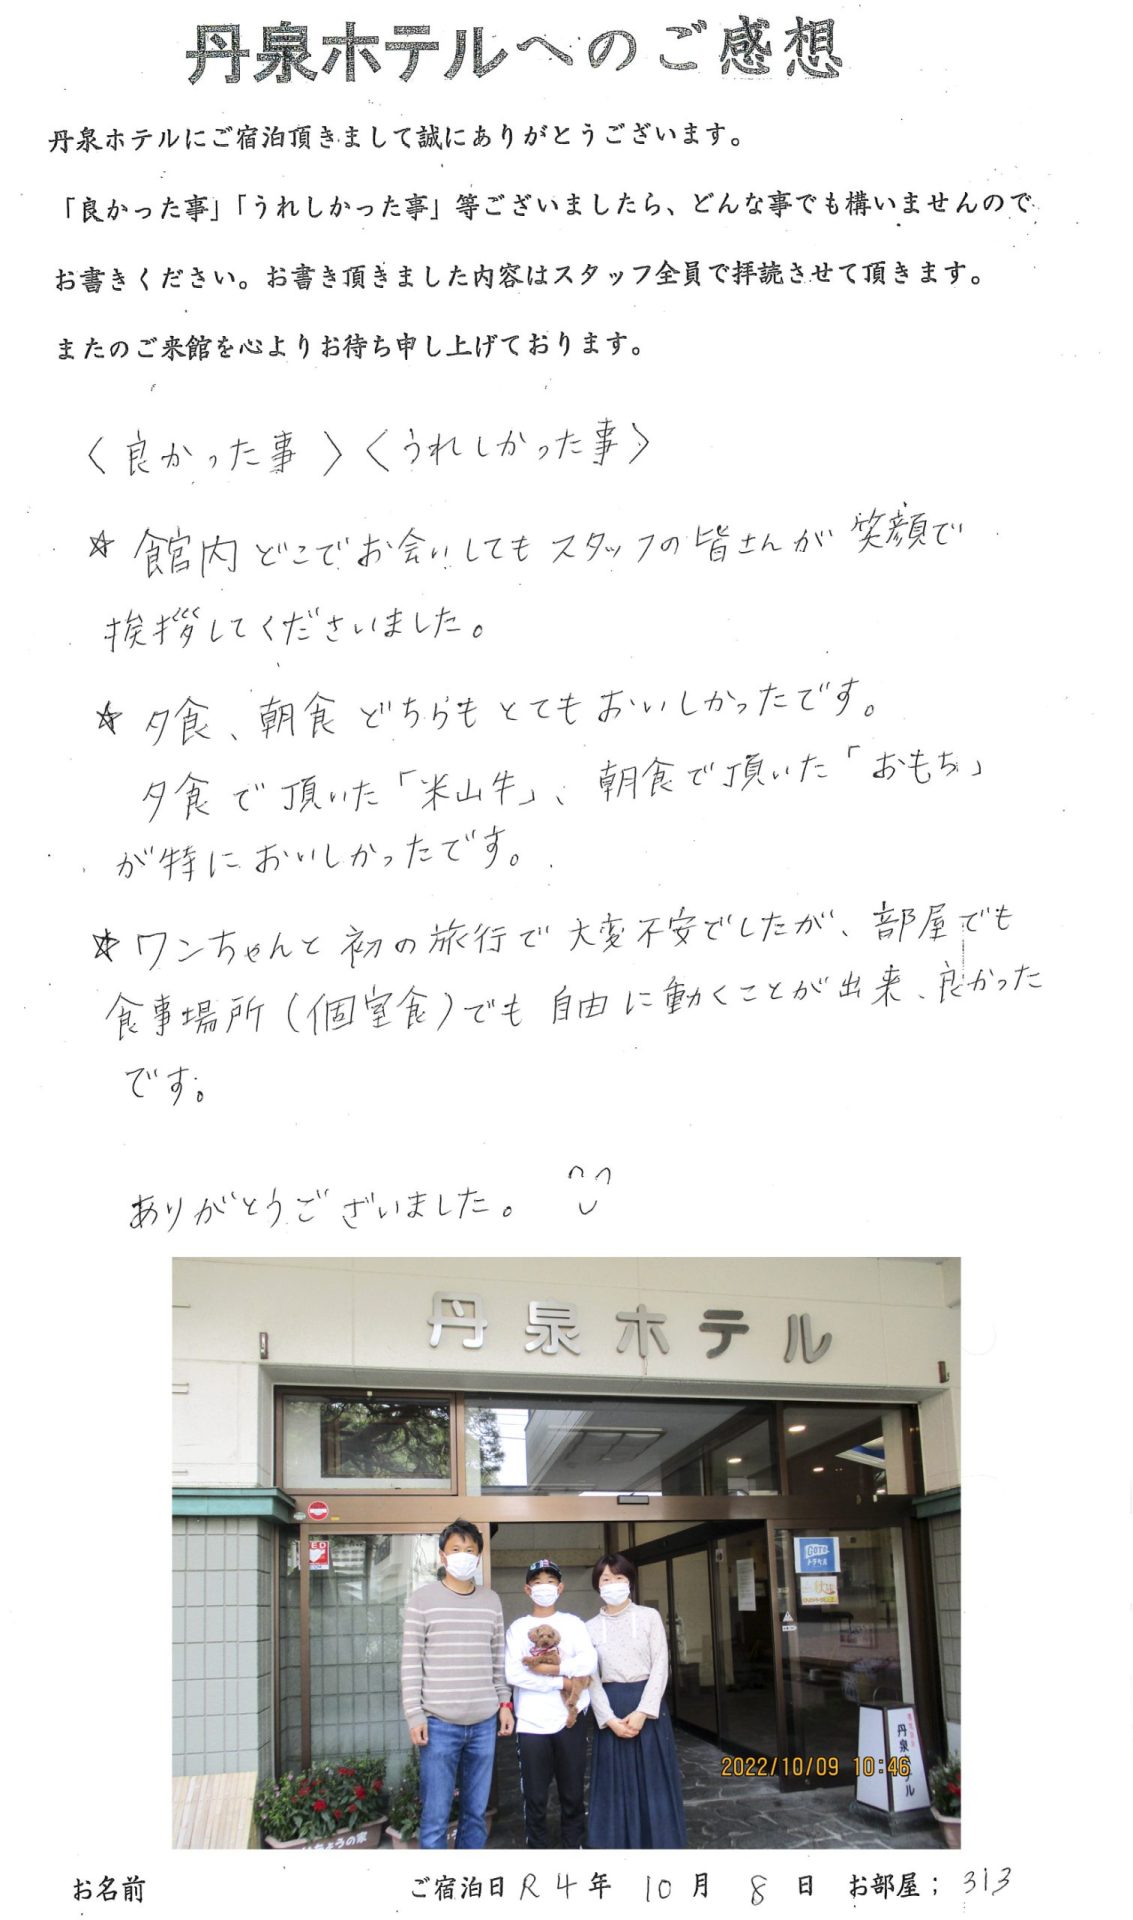 丹泉ホテルへのご感想
丹泉ホテルにご宿泊頂きまして誠にありがとうございます。
「良かった事」「うれしかった事」等ございましたら、どんな事でも構いませんので
お書きください。お書き頂きました内容はスタッフ全員で拝読させて頂きます。
またのご来館を心よりお待ち申し上げております。
〈良かった事〉〈うれしかった事〉
☆館内どこでお会いしてもスタッフの皆さんが笑顔で
挨拶してくださいました。
☆夕食、朝食どちらもとてもおいしかったです。
夕食で頂いた「米山牛」、朝食で頂いた「おもち」
が特においしかったです。
☆ワンちゃんと初の旅行で大変不安でしたが、部屋でも
食事場所(個室食)でも自由に動くことが出来、良かった
です。
ありがとうございました。
丹泉ホテル
GOTO
トラベル
丹泉ホテル
2022/10/09 10:46
ちょうの家
お名前 ご宿泊日 R4年 10月 8日 お部屋; 313